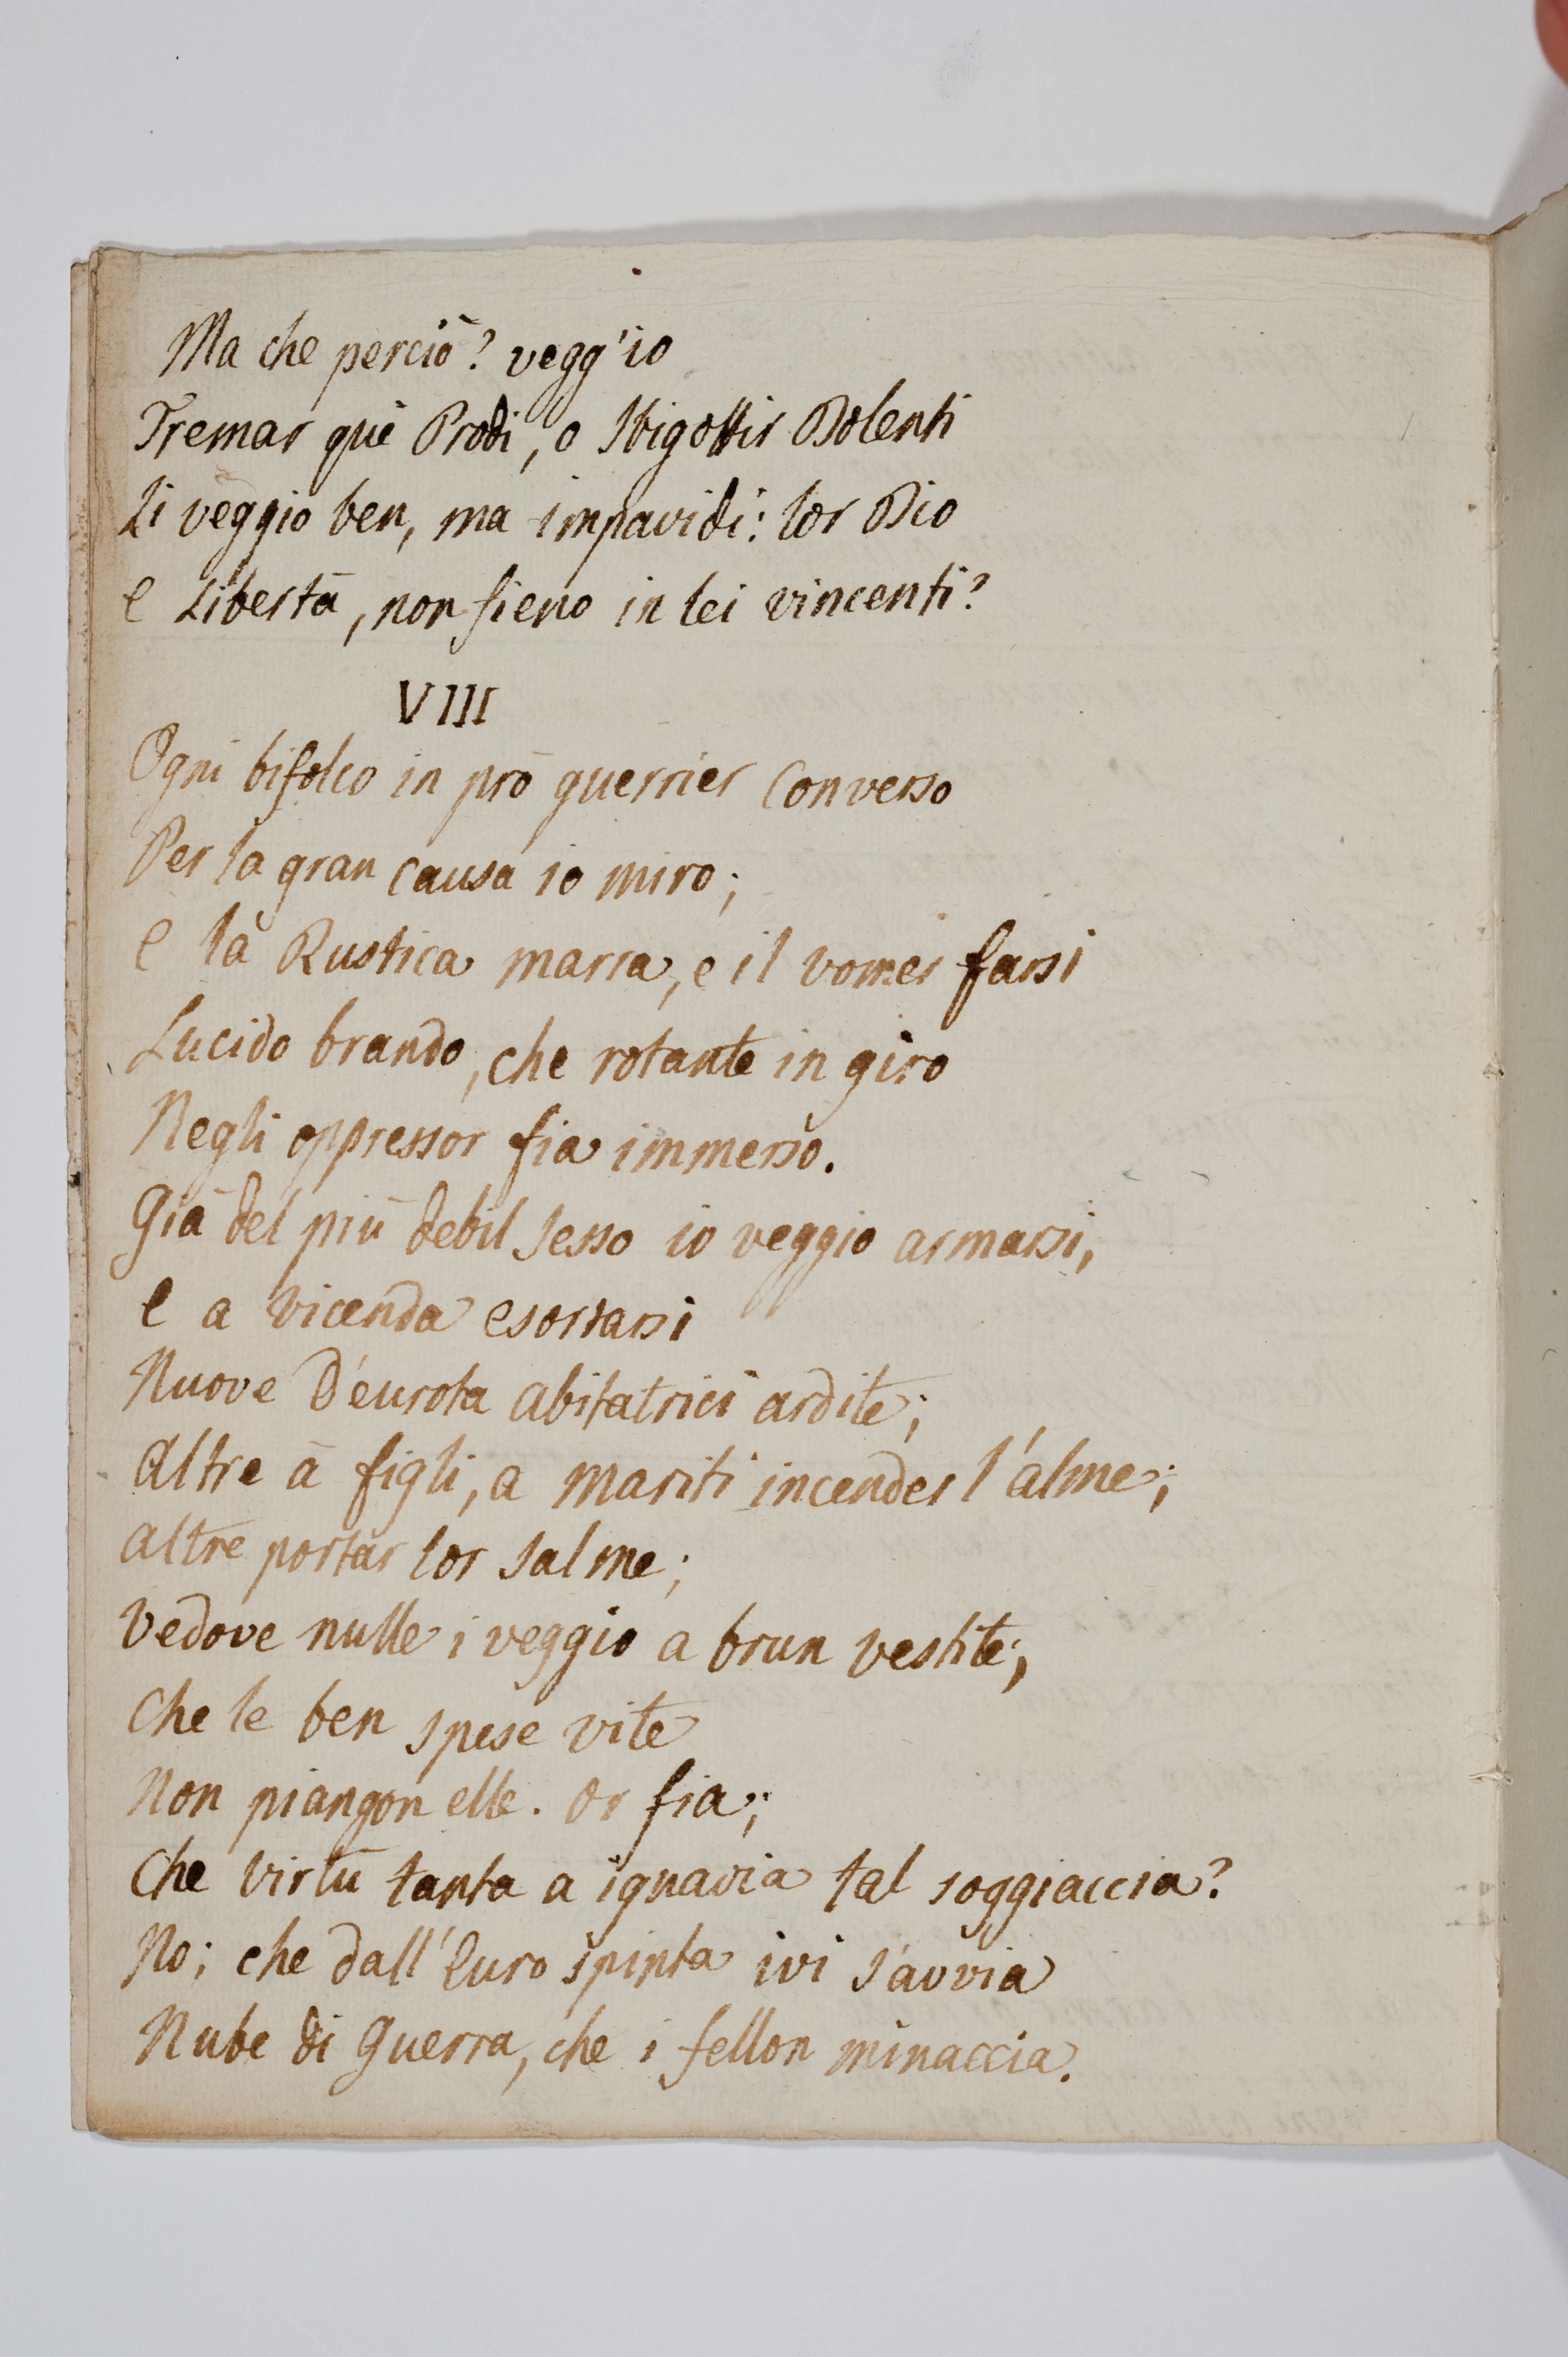 Ma che perciò? vegg'io
Tremar què Prodi, o Sbigottir Dolenti
Li veggio ben, ma impavidi: lor Dio
E Libertà, non fieno in lei vincenti?
VIII
Ogni bifolco in prò guerrier Converso
Per la gran Causa io miro;
E la Rustica marra, e il vomer farsi
Lucido brando, che rotante in giro
Negli oppressor fia immerso.
Già del più debil Sesso io veggio armarsi,
E a vicenda esortarsi
Nuove D'eurota abitatrici ardite;
Altre à figli, a mariti incender l'alme;
Altre portar lor Salme;
Vedove nulle i veggio a brun vestite;
Che le ben spese vite
Non piangon elle. Or fia;
Che virtù tanta a ignavia tal soggiaccia?
No; che dall'Euro spinta ivi s'avvia
Nube di Guerra, che i fellon minaccia.